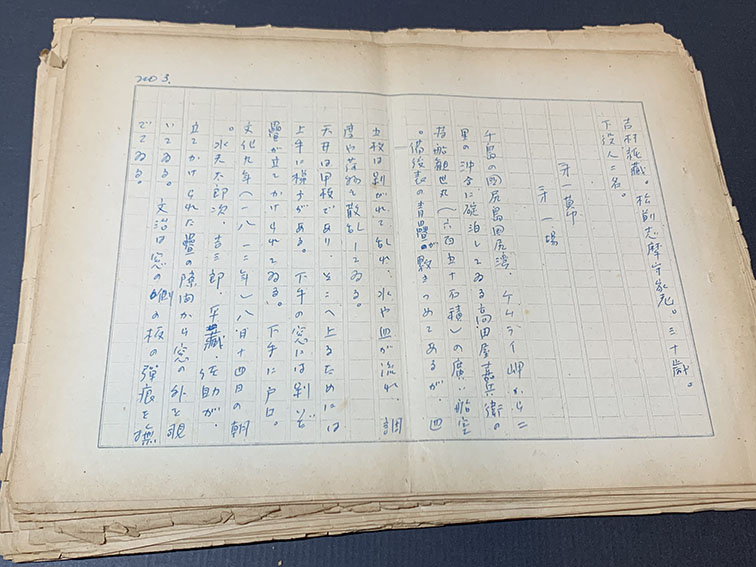 No 3.
吉村純蔵。松前志摩守家老。三十歳。
下役人二名。
才一幕
才一場
千島の国尻島国尻湾、ケムライ岬から二
里の沖合に碇泊してゐる高田屋嘉兵衛の
持船観世丸(六百五十石積)の広い船室
。備後表の青畳が敷きつめてあるが、四
五枚は剝がれて乱れ、水や血が流れ、調
度や荷物が散乱してゐる。
天井は甲板であり、そこへ上るためには
上手に梯子がある。下手の窓には剝いだ
畳が立てかけられてゐる。下手に戸口。
文化九年(一八一二年)八月十四日の朝
。水夫太郎次、吉三郎、平蔵、佐助が、
立てかけられた畳の隙間から窓の外を覗
いてゐる。文治は窓の側の板の弾痕を撫
でてゐる。